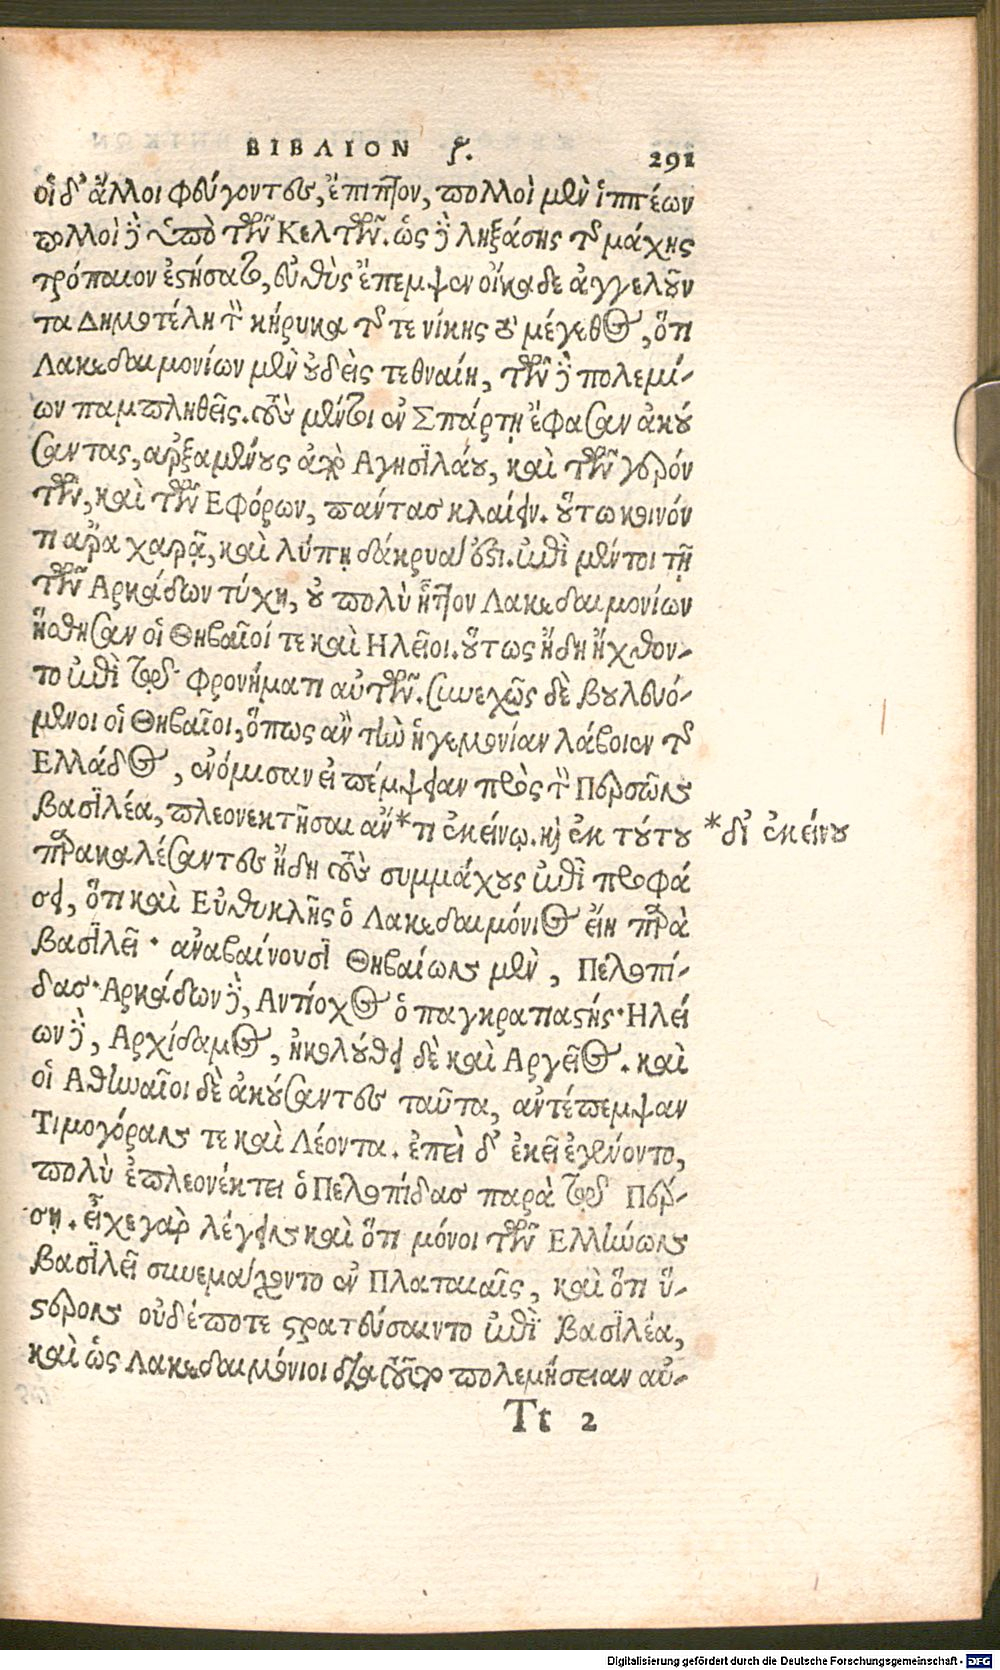 ΒΙΒΛΙΟΝ ϛ. 291
οἱ δ' ἄλλοι φεύγοντες, ἔπιπτον, πολλοὶ μὲν ἱππέων
πολλοὶ δὲ ὑπὸ τῶν Κελτῶν. ὡς δὲ ληξάσης τῆς μάχης
τρόπαιον ἐστήσατο, εὐθὺς ἔπεμψεν οἴκαδε ἀγγελοῦν
τα Δημοτέλη τὸν κήρυκα τῆς τε νίκης τὸ μέγεθος, ὅτι
Λακεδαιμονίων μὲν οὐδεὶς τεθναίη, τῶν δὲ πολεμί-
ων παμπληθεῖς. τοὺς μέντοι ἐν Σπάρτῃ ἔφασαν ἀκού
σαντας, ἀρξαμένους ἀπὸ Αγησιλάου, καὶ τῶν γερόν
των, καὶ τῶν Εφόρων, πάντας κλαίειν. οὕτω κοινόν
τι ἄρα χαρᾷ, καὶ λύπῃ δάκρυά ἐστι. ἐπὶ μέντοι τῇ
τῶν Αρκάδων τύχῃ, οὐ πολὺ ἧττον Λακεδαιμονίων
ἥσθησαν οἱ Θηβαῖοί τε καὶ Ηλεῖοι. οὕτως ἤδη ἤχθον-
το ἐπὶ τῷ φρονήματι αὐτῶν. Συνεχῶς δὲ βουλευό-
μενοι οἱ Θηβαῖοι, ὅπως ἂν τὴν ἡγεμονίαν λάβοιεν τῆς
Ελλάδος, ἐνόμισαν εἰ πέμψειαν πρὸς τὸν Περσῶν
βασιλέα, πλεονεκτῆσαι ἄν* τι ἐκείνῳ. καὶ ἐκ τούτου *δι' ἐκείνου
παρακαλέσαντες ἤδη τοὺς συμμάχους ἐπὶ προφά
σει, ὅτι καὶ Εὐθυκλῆς ὁ Λακεδαιμόνιος εἴη παρὰ
βασιλεῖ· ἀναβαίνουσι Θηβαίων μὲν, Πελοπί-
δας· Αρκάδων δὲ, Αντίοχος ὁ παγκρατιαστής· Ηλεί
ων δὲ, Αρχίδαμος, ἠκολούθει δὲ καὶ Αργεῖος. καὶ
οἱ Αθηναῖοι δὲ ἀκούσαντες ταῦτα, ἀντέπεμψαν
Τιμογόραν τε καὶ Λέοντα. ἐπεὶ δ' ἐκεῖ ἐγένοντο,
πολὺ ἐπλεονέκτει ὁ Πελοπίδας παρὰ τῷ Πέρ-
σῃ. εἶχε γὰρ λέγειν καὶ ὅτι μόνοι τῶν Ελλήνων
βασιλεῖ συνεμάχοντο ἐν Πλαταιαῖς, καὶ ὅτι ὕ-
στερον οὐδέποτε στρατεύσαιντο ἐπὶ βασιλέα,
καὶ ὡς Λακεδαιμόνιοι διὰ τοῦτο πολεμήσειαν αὐ-
Tt 2
Digitalisierung gefördert durch die Deutsche Forschungsgemeinschaft - DFG